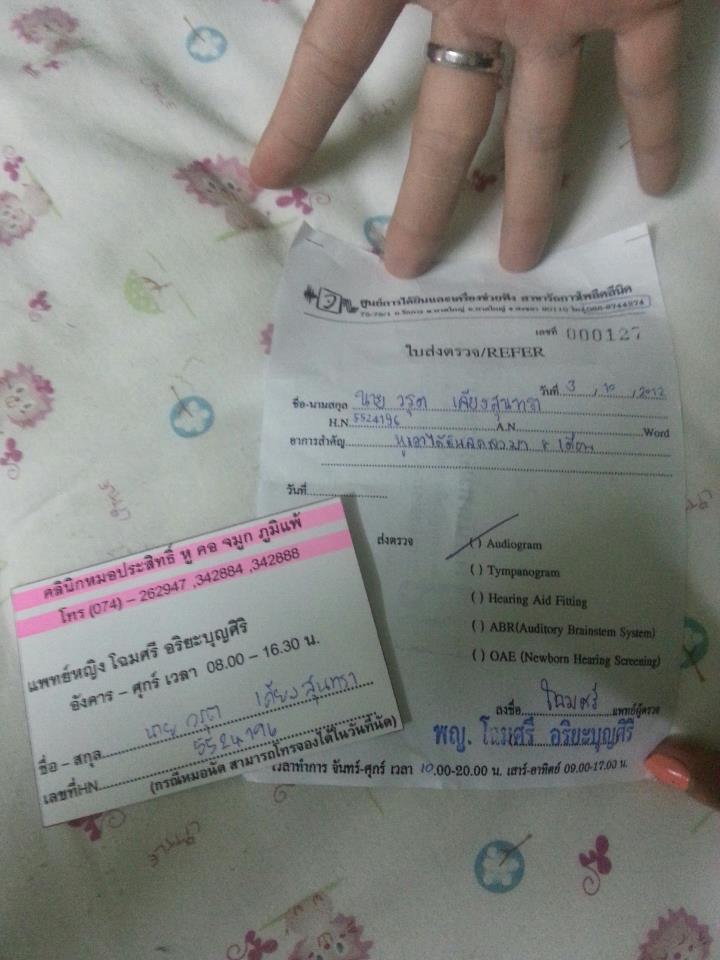 ศูนย์การได้ยินและเครื่องช่วยฟัง สาขารัถการโพลีคลีนิค
เลขที่ 000127
ใบส่งตรวจ/REFER
วันที่ 3 / 10 / 2012
ชื่อ-นามสกุล นาย วรุต เคียงสุนทรา
H.N. 5524196 A.N. Word
อาการสำคัญ
วันที่
ส่งตรวจ ( ) Audiogram
( ) Tympanogram
( ) Hearing Aid Fitting
( ) ABR(Auditory Brainstem System)
( ) OAE (Newborn Hearing Screening)
ลงชื่อ โฉมศรี แพทย์ผู้ตรวจ
พญ. โฉมศรี อริยะบุญศิริ
เวลาทำการ จันทร์-ศุกร์ เวลา 10.00-20.00 น. เสาร์-อาทิตย์ 09.00-17.00 น.
คลินิกหมอประสิทธิ์ หู คอ จมูก ภูมิแพ้
โทร (074) – 262947 ,342884 ,342888
แพทย์หญิง โฉมศรี อริยะบุญศิริ
อังคาร – ศุกร์ เวลา 08.00 – 16.30 น.
ชื่อ – สกุล นาย วรุต เคียงสุนทรา
เลขที่HN 5524196
(กรณีหมอนัด สามารถโทรจองได้ในวันที่นัด)